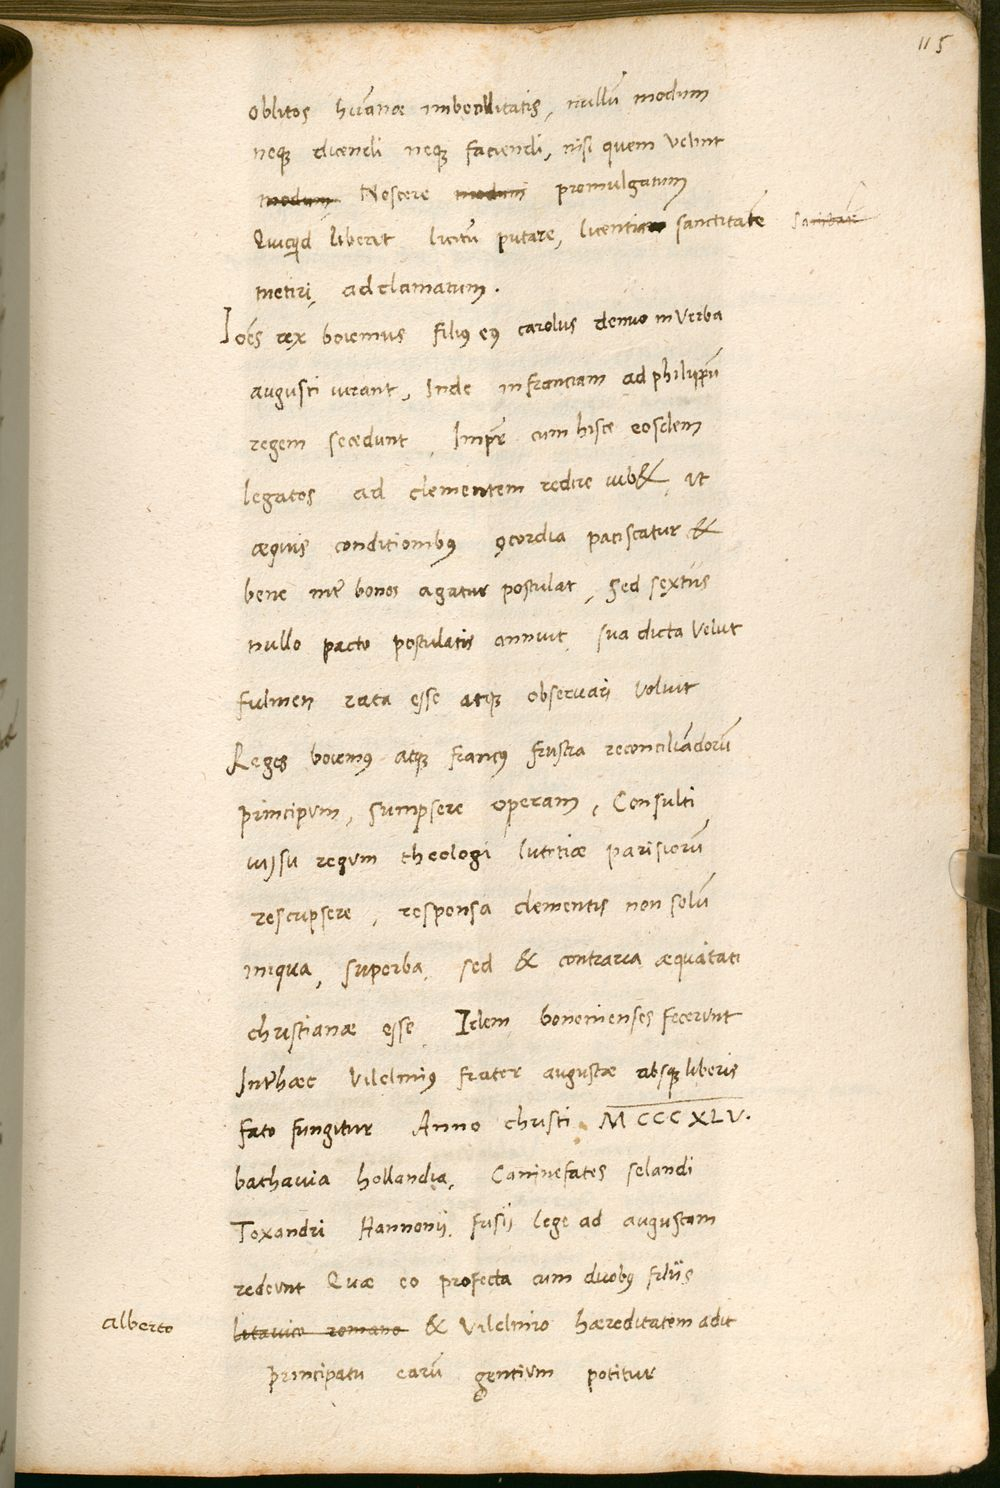 115
oblitos hūanæ imbecillitatis, nullū modum
neqꝫ dicendi neqꝫ faciendi, nisi quem velint
modum Noscere modum promulgatum
Quicqd liberit licitū putare, licentiam sanctitate
metiri, adclamatum.
Ioēs rex boiemus filiꝰ eiꝰ carolus denuo in verba
augusti iurant, Inde in franciam ad philippū
regem secedunt, Impr̄ cum hisce eosdem
legatos ad clementem redire iub&, ut
æquis conditionibꝰ ꝯcordia paciscatur &
bene int̄ bonos agatur postulat, sed sextus
nullo pacto postulatis annuit, sua dicta velut
fulmen rata esse atqꝫ observari voluit
Reges boiemꝰ atqꝫ francꝰ frustra reconciliādorū
principum, sumpsere operam, Consulti
iussu regum theologi lutetiæ parisiorū
rescripsere, responsa clementis non solū
iniqua, superba, sed & contraria æquitati
christianæ esse Idem bononienses fecerunt
Int̄hæc Vilelmiꝰ frater augustæ absqꝫ liberis
fato fungitur Anno christi MCCCXLV.
bathavia hollandia, Caninefates selandi
Toxandri Hannonij, frisij lege ad augustam
redeunt Quæ eo profecta cum duobꝰ filiis
alberto
litavico romano & Vilelmo hæreditatem adit
principatu earū gentium potitur